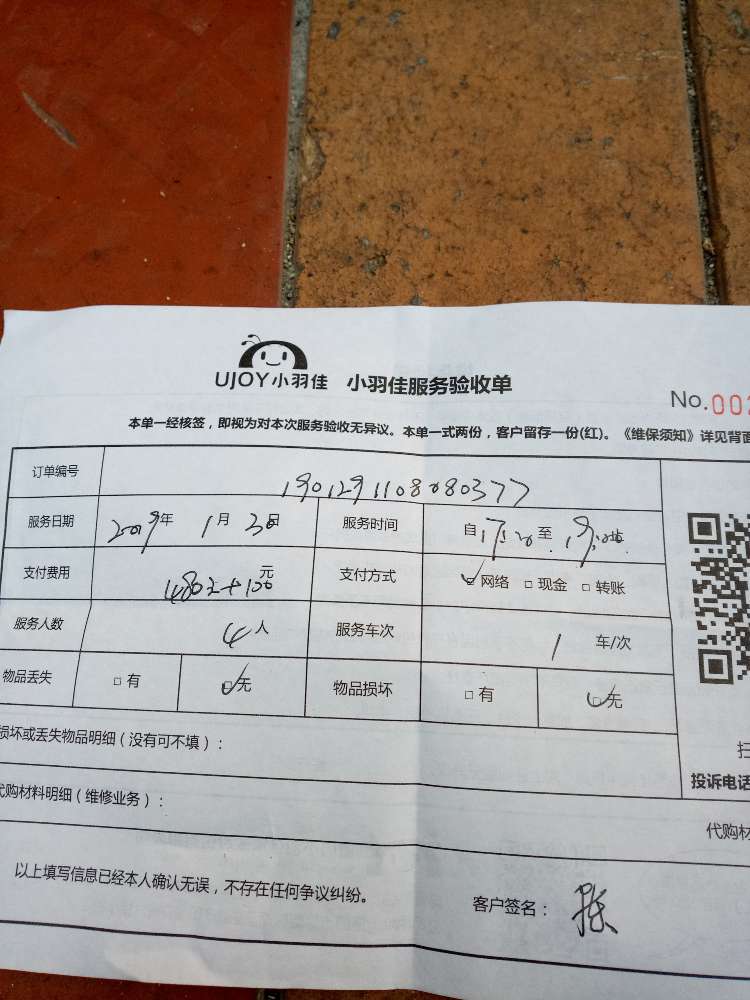 UJOY小羽佳 小羽佳服务验收单
No.002
本单一经核签，即视为对本次服务验收无异议。本单一式两份，客户留存一份(红)。《维保须知》详见背面
订单编号 190129110808080377
服务日期 2019年 1月 30日 服务时间 自17:20至
支付费用 1480元+100元 支付方式 网络 现金 转账
服务人数 4人 服务车次 1 车/次
物品丢失 有 无 物品损坏 有 无
损坏或丢失物品明细（没有可不填）：
扫
投诉电话
代购材料明细（维修业务）：
代购材
以上填写信息已经本人确认无误，不存在任何争议纠纷。
客户签名：张